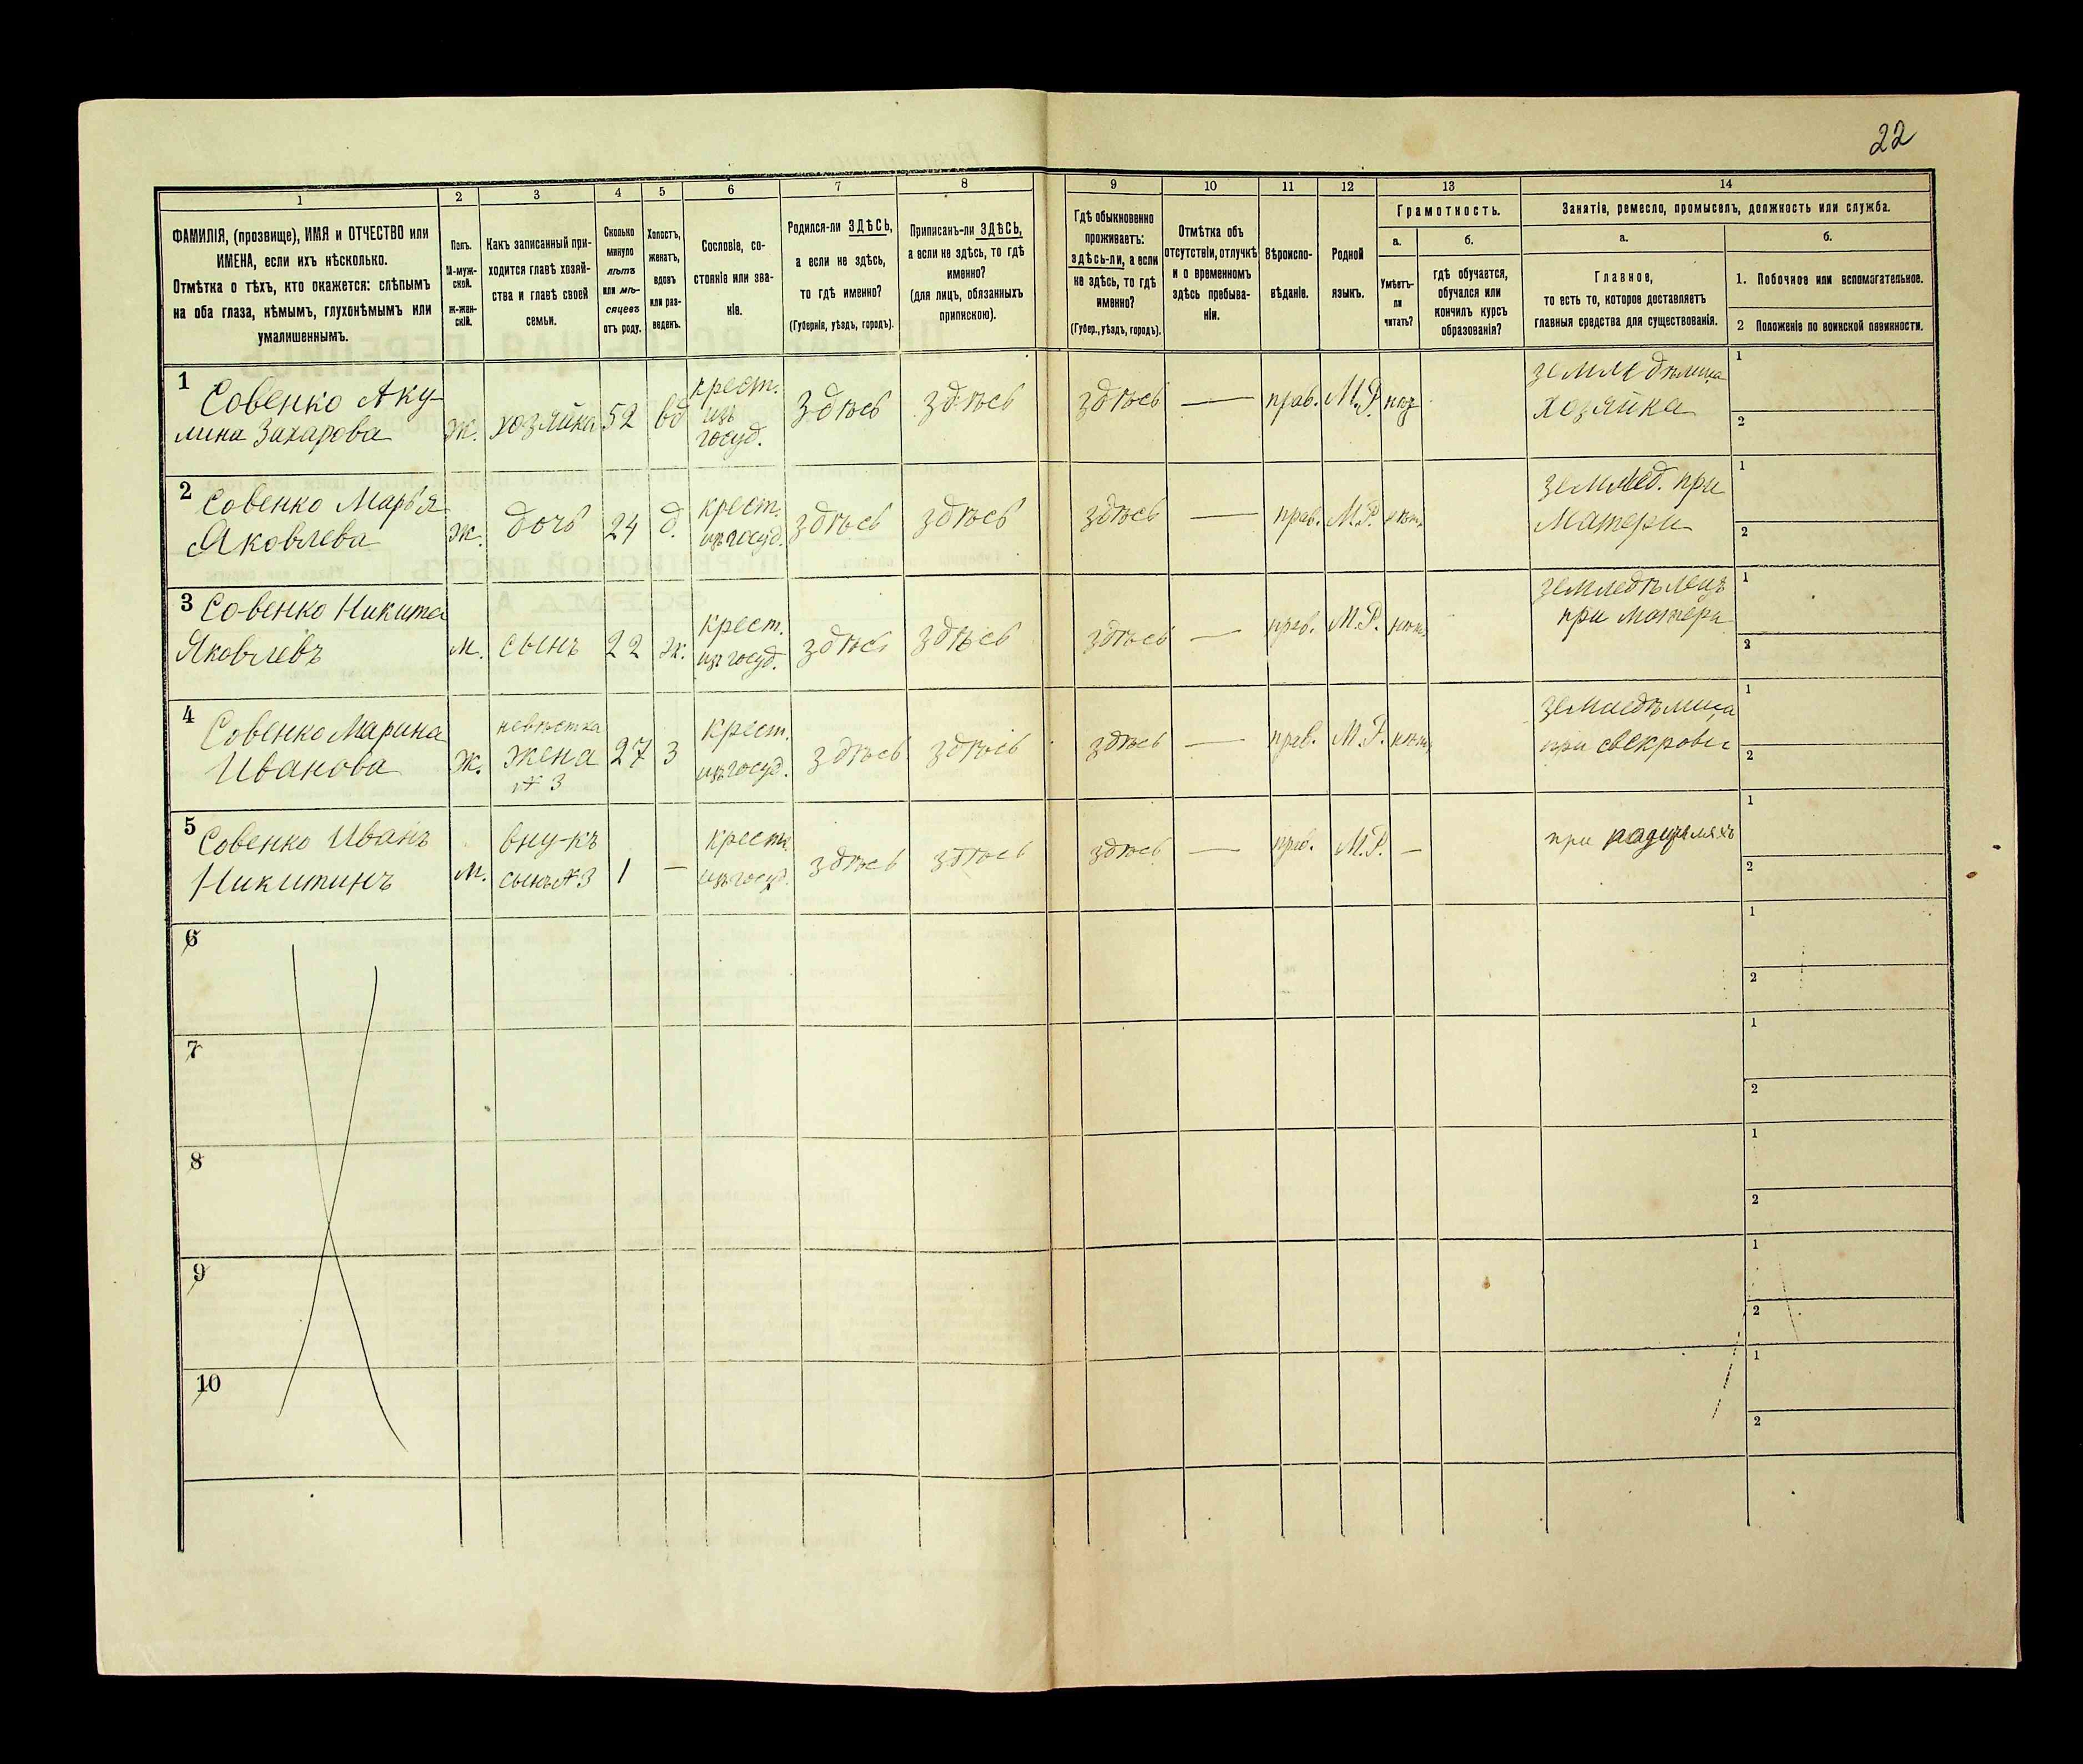 22
1 2 3 4 5 6 7 8 9 10 11 12 13 14
ФАМИЛІЯ, (прозвище), ИМЯ и ОТЧЕСТВО или
ИМЕНА, если ихъ нѣсколько.
Отмѣтка о тѣхъ, кто окажется: слѣпымъ
на оба глаза, нѣмымъ, глухонѣмымъ или
умалишеннымъ.
Полъ.
М-муж-
ской.
Ж-жен-
скій.
Какъ записанный при-
ходится главѣ хозяй-
ства и главѣ своей
семьи.
Сколько
минуло
лѣтъ
или мѣ-
сяцевъ
отъ роду.
Холостъ,
женатъ,
вдовъ
или раз-
веденъ.
Сословіе, со-
стояніе или зва-
ніе.
Родился-ли ЗДѢСЬ,
а если не здѣсь,
то гдѣ именно?
(Губернія, уѣздъ, городъ).
Приписанъ-ли ЗДѢСЬ,
а если не здѣсь, то гдѣ
именно?
(для лицъ, обязанныхъ
припискою).
Гдѣ обыкновенно
проживаетъ:
здѣсь-ли, а если
не здѣсь, то гдѣ
именно?
(Губер., уѣздъ, городъ).
Отмѣтка объ
отсутствіи, отлучкѣ
и о временномъ
здѣсь пребыва-
ніи.
Вѣроиспо-
вѣданіе.
Родной
языкъ.
Грамотность.
а.
Умѣетъ-
ли
читать?
б.
гдѣ обучается,
обучался или
кончилъ курсъ
образованія?
Занятіе, ремесло, промыселъ, должность или служба.
а.
Главное,
то есть то, которое доставляетъ
главныя средства для существованія.
б.
1. Побочное или вспомогательное.
2 Положеніе по воинской повинности.
1 Совенко Аку-
лина Захарова
ж. хозяйка 52 вд
крест.
изъ
госуд.
здѣсь здѣсь здѣсь — прав. М.Р. нѣт
земледѣлица
хозяйка
1
2
2 Совенко Марья
Яковлева
ж. дочь 24 д.
крест.
изъ госуд.
здѣсь здѣсь здѣсь — прав. М.Р. нѣт.
земллед. при
Матери
1
2
3 Совенко Никита
Яковлевъ
м. сынъ 22 ж.
крест.
изъ госуд.
здѣсь здѣсь здѣсь — прав. М.Р. нѣт.
земледѣлецъ
при матери
1
2
4 Совенко Марина
Иванова
ж.
невѣстка
жена
№ 3
27 З
крест.
изъ госуд.
здѣсь здѣсь здѣсь — прав. М.Р. нѣт.
земледѣлица
при свекрови
1
2
5 Совенко Иванъ
Никитинъ
м.
вну-къ
сынъ № 3
1 —
крест.
изъ госуд.
здѣсь здѣсь здѣсь — прав. М.Р. —
при родителяхъ
1
2
6
1
2
7
1
2
8
1
2
9
1
2
10
1
2